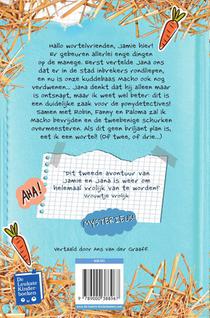 Hallo wortelvrienden, Jamie hier!
Er gebeuren allerlei enge dingen
op de manege. Eerst vertelde Jana ons
dat er in de stad inbrekers rondliepen,
en nu is onze kuddebaas Macho ook nog
verdwenen... Jana denkt dat hij alleen maar
is ontsnapt, maar ik weet wel beter: dit is
een duidelijke zaak voor de ponydetectives!
Samen met Robin, Fanny en Paloma zal ik
Macho bevrijden en de tweebenige schurken
overmeesteren. Als dit geen briljant plan is,
eet ik een wortel! (Of twee, of drie...)
AHA!
"Dit tweede avontuur van
Jamie en Jana is weer om
helemaal vrolijk van te worden!"
Vrouwtje Vrolijk
MYSTERIEUS!
Vertaald door Ans van der Graaff
De
Leukste
Kinder
boeken